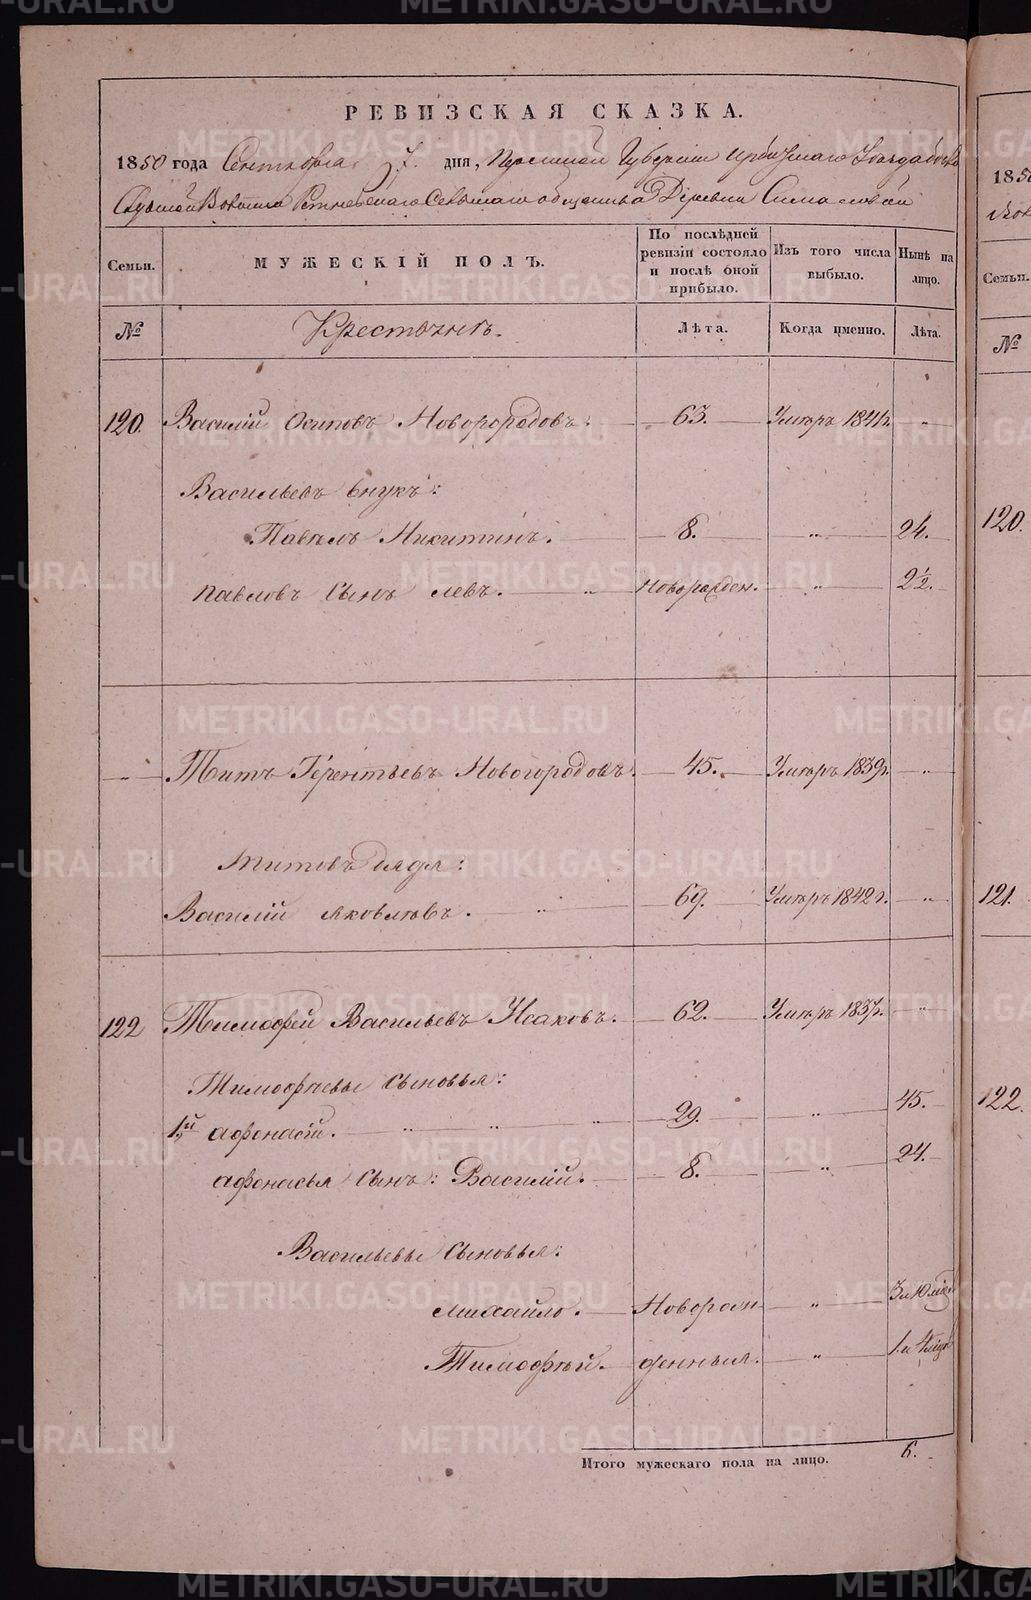 РЕВИЗСКАЯ СКАЗКА.
1850 года Сентября 7. дня, Пермской Губернии Ирбитскаго уезда
Волости Сельскаго общества Деревни
Семьи.
МУЖЕСКІЙ ПОЛЪ.
По послѣдней ревизіи состояло и послѣ оной прибыло.
Изъ того числа выбыло.
Нынѣ на лицо.
№
Крестьянъ.
Лѣта.
Когда именно.
Лѣта.
120. Василій Осиповъ Новогородовъ. 63. Умеръ 1841г. "
Васильевъ внукъ:
Павелъ Никитинъ. 8. " 24.
Павловъ Сынъ Левъ. " Новорожден. " 2 1/2.
" Титъ Терентьевъ Новогородовъ. 45. Умеръ 1839г. "
Титовъ дядя:
Василій Яковлевъ. " 69. Умеръ 1842г. "
122 Тимофей Васильевъ Исаковъ. 62. Умеръ 1837г. "
Тимофеевы Сыновья:
1й Афонасій. " " " 29. " 45.
Афонасья Сынъ: Василій. 8. " 24.
Васильевы Сыновья:
Михайло. Новорож " 3 и 10 мѣс
Тимофѣй. денныя. " 1 и 4 мѣс
Итого мужескаго пола на лицо. 6.
1850
Семьи.
№
120.
121.
122.
METRIKI.GASO-URAL.RU